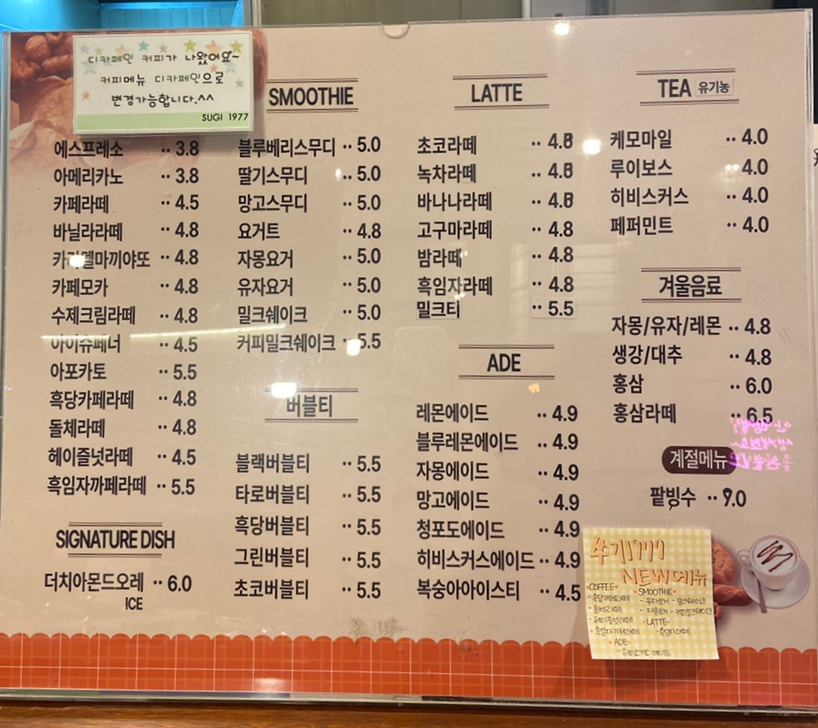 디카페인 커피가 나왔어요~
커피메뉴 디카페인으로
변경가능합니다.^^
SUGI 1977
에스프레소 ·· 3.8
아메리카노 ·· 3.8
카페라떼 ·· 4.5
바닐라라떼 ·· 4.8
카라멜마끼야또 ·· 4.8
카페모카 ·· 4.8
수제크림라떼 ·· 4.8
아이슈페너 ·· 4.5
아포카토 ·· 5.5
흑당카페라떼 ·· 4.8
돌체라떼 ·· 4.8
헤이즐넛라떼 ·· 4.5
흑임자까페라떼 ·· 5.5
SIGNATURE DISH
더치아몬드오레 ·· 6.0
ICE
SMOOTHIE
블루베리스무디 ·· 5.0
딸기스무디 ·· 5.0
망고스무디 ·· 5.0
요거트 ·· 4.8
자몽요거 ·· 5.0
유자요거 ·· 5.0
밀크쉐이크 ·· 5.0
커피밀크쉐이크 ·· 5.5
버블티
블랙버블티 ·· 5.5
타로버블티 ·· 5.5
흑당버블티 ·· 5.5
그린버블티 ·· 5.5
초코버블티 ·· 5.5
LATTE
초코라떼 ·· 4.8
녹차라떼 ·· 4.8
바나나라떼 ·· 4.8
고구마라떼 ·· 4.8
밤라떼 ·· 4.8
흑임자라떼 ·· 4.8
밀크티 ·· 5.5
ADE
레몬에이드 ·· 4.9
블루레몬에이드 ·· 4.9
자몽에이드 ·· 4.9
망고에이드 ·· 4.9
청포도에이드 ·· 4.9
히비스커스에이드 ·· 4.9
복숭아아이스티 ·· 4.5
TEA 유기농
케모마일 ·· 4.0
루이보스 ·· 4.0
히비스커스 ·· 4.0
페퍼민트 ·· 4.0
겨울음료
자몽/유자/레몬 ·· 4.8
생강/대추 ·· 4.8
홍삼 ·· 6.0
홍삼라떼 ·· 6.5
계절메뉴
팥빙수 ·· 9.0
쑤기1977
NEW메뉴
·COFFEE·
·SMOOTHIE·
·LATTE·
·ADE·